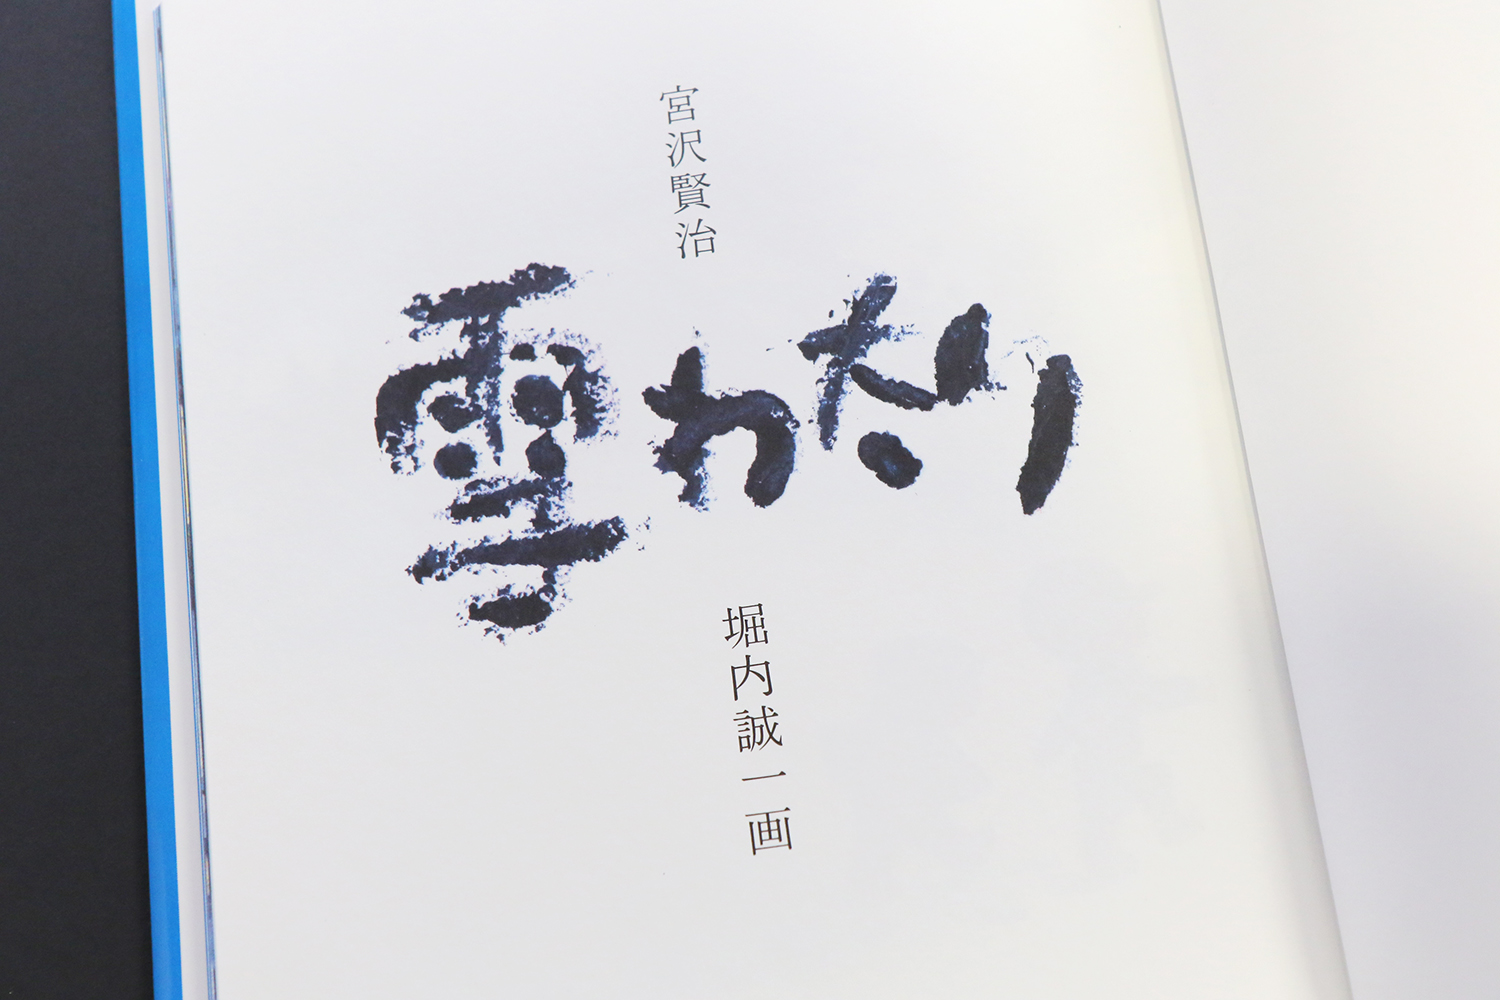 宮沢賢治
雪わたり
堀内誠一画